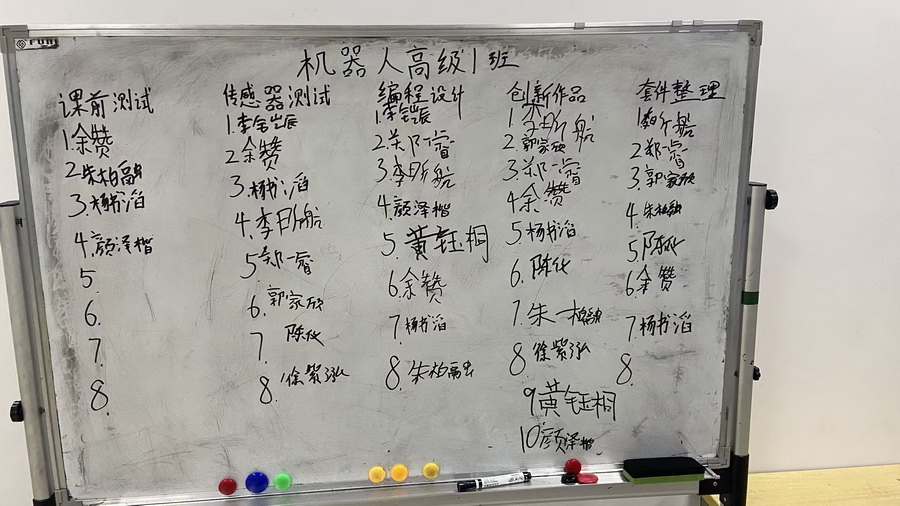 机器人高级1班
课前测试
1.余赞
2.朱柏融
3.杨书滔
4.颜泽楷
5.
6.
7.
8.
传感器测试
1.李铠辰
2.余赞
3.杨书滔
4.李昕航
5.郑一睿
6.郭家欣
7.陈
8.徐紫泓
编程设计
1.李铠辰
2.郑一睿
3.李昕航
4.颜泽楷
5.黄钰桐
6.余赞
7.杨书滔
8.朱柏融
创新作品
1.李昕航
2.郭家欣
3.郑一睿
4.余赞
5.杨书滔
6.陈
7.朱柏融
8.徐紫泓
9.黄钰桐
10.颜泽楷
套件整理
1.昕航
2.郑一睿
3.郭家欣
4.朱柏融
5.陈
6.余赞
7.杨书滔
8.